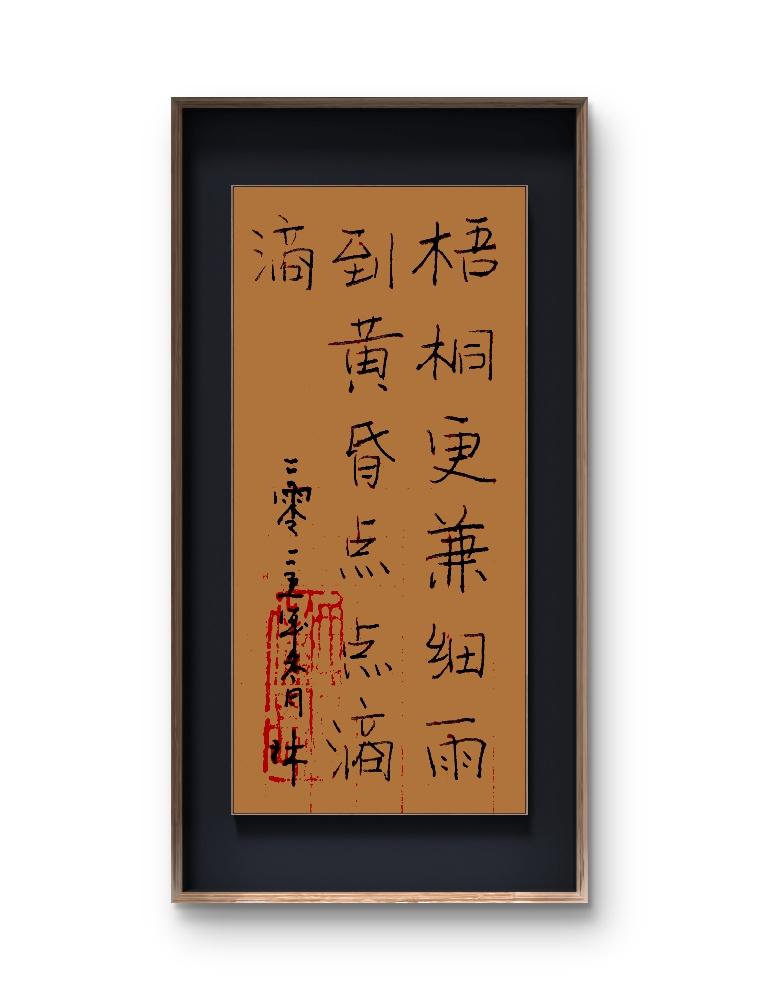 梧桐更兼细雨
到黄昏点点滴
滴
二零二五年冬月